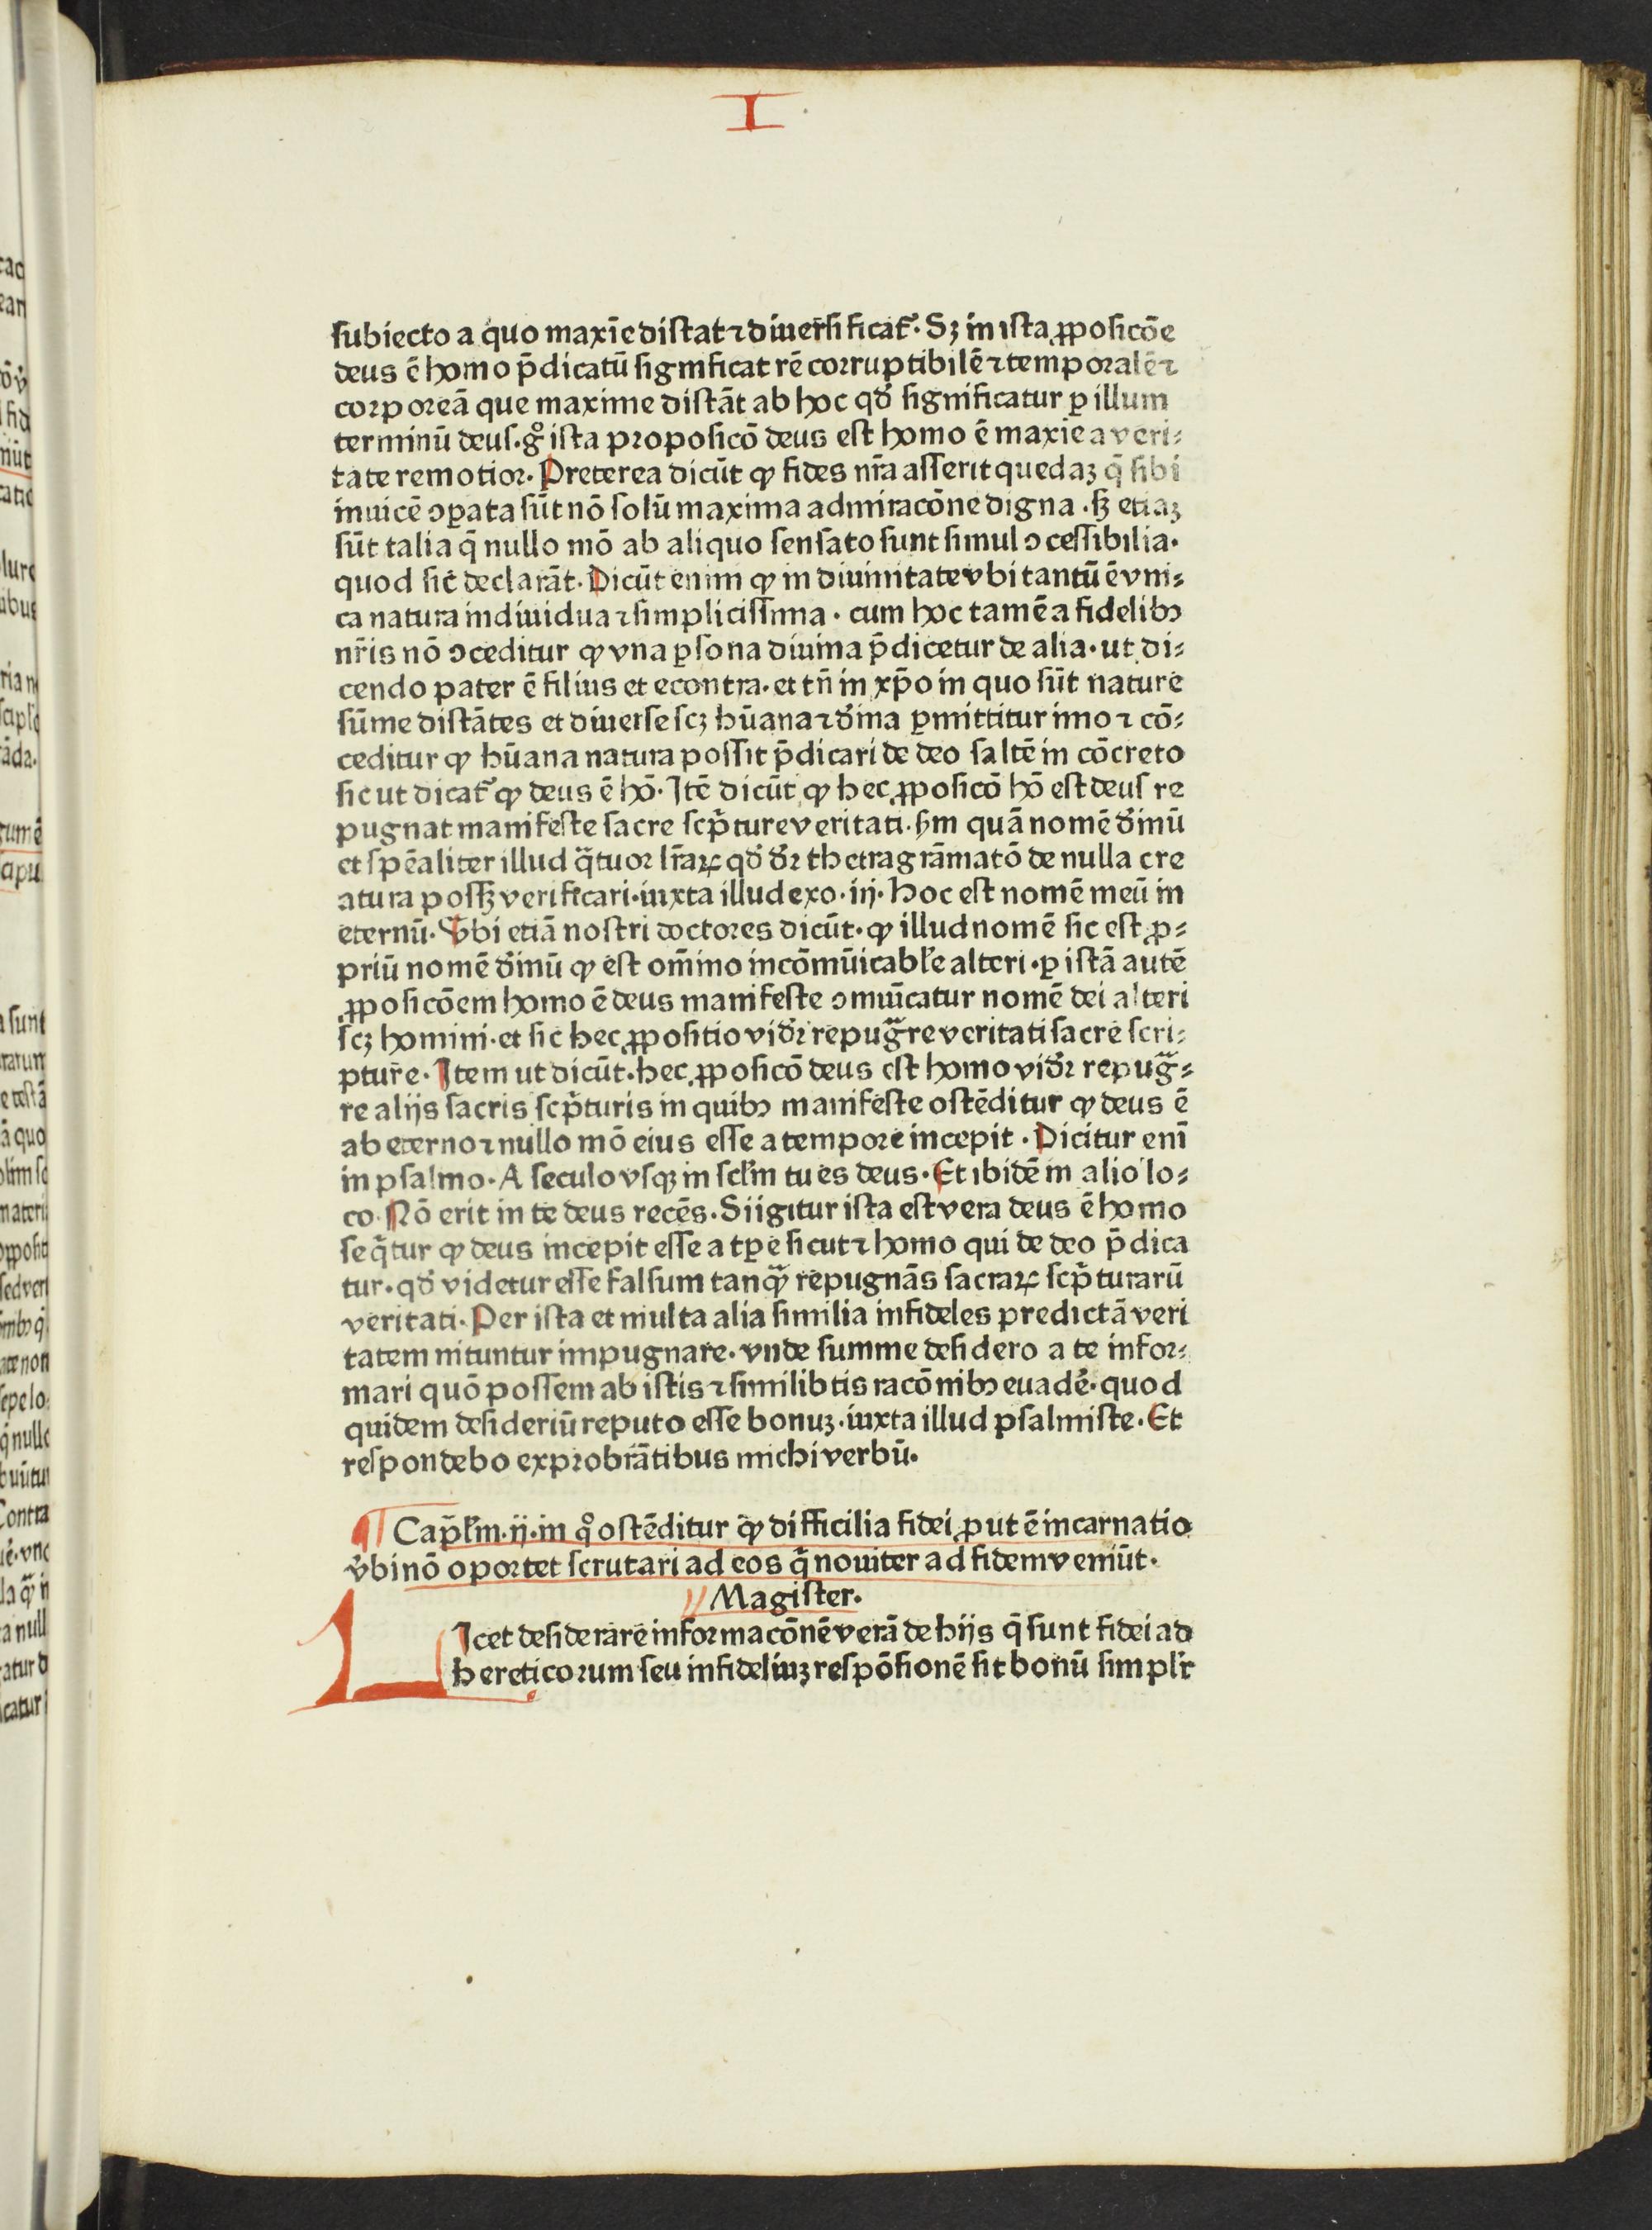 I
subiecto a quo maxīe distat ⁊ diuersificat᷑. Sʒ in ista ꝓposicōe
deus ē homo p̄dicatū significat rē corruptibilē ⁊ temporalē ⁊
corporeā que maxime distāt ab hoc qđ significatur ꝑ illum
terminū deus. gͦ ista proposicō deus est homo ē maxīe a veri⸗
tate remotior. Preterea dicūt ꝙ fides nr̄a asserit quedaʒ q̄ sibi
inuicē ↄꝑata sūt nō solū maxima admiracōne digna. sʒ etiaʒ
sūt talia q̄ nullo mō ab aliquo sensato sunt simul ↄcessibilia.
quod sic declarāt. Dicūt enim ꝙ in diuinitate vbi tantū ē vni⸗
ca natura indiuidua ⁊ simplicissima. cum hoc tamē a fidelibꝫ
nr̄is nō ↄceditur ꝙ vna ꝑsona diuina p̄dicetur de alia. ut di⸗
cendo pater ē filius et econtra. et tn̄ in xp̄o in quo sūt nature
sūme distātes et diuerse scʒ hūana ⁊ diu̅ina ꝑmittitur imo ⁊ cō⸗
ceditur ꝙ hūana natura possit p̄dicari de deo saltē in cōcreto
sic ut dicat᷑ ꝙ deus ē hō. Itē dicūt ꝙ hec ꝓposicō hō est deus re
pugnat manifeste sacre scp̄ture veritati. ẜm quā nomē diuinū
et spēaliter illud q̄tuor lr̄aꝝ qđ dr̄ thetragrāmatō de nulla cre
atura possʒ verificari. iuxta illud exo. iij. Hoc est nomē meū in
eternū. Vbi etiā nostri doctores dicūt. ꝙ illud nomē sic est ꝓ⸗
priū nomē diuinū ꝙ est om̄ino incōmūicabłe alteri. ꝑ istā autē
ꝓposicōem homo ē deus manifeste ↄmuīcatur nomē dei alteri
scʒ homini. et sic hec ꝓpositio vidr̄ repugᷓre veritati sacre scri⸗
pture. Item ut dicūt. hec ꝓposicō deus est homo vidr̄ repugᷓ⸗
re alijs sacris scp̄turis in quibꝫ manifeste ostēditur ꝙ deus ē
ab eterno ⁊ nullo mō eius esse a tempore incepit. Dicitur enī
in psalmo. A seculo vsqꝫ in scłm tu es deus. Et ibidē in alio lo⸗
co. Nō erit in te deus recēs. Si igitur ista est vera deus ē homo
seq̄tur ꝙ deus incepit esse a tꝑe sicut ⁊ homo qui de deo p̄dica
tur. qđ videtur esse falsum tanqᷓ repugnās sacraꝝ scp̄turarū
veritati. Per ista et multa alia similia infideles predictā veri
tatem nituntur impugnare. vnde summe desidero a te infor⸗
mari quō possem ab istis ⁊ similibus racōnibꝫ euadē. quod
quidem desideriū reputo esse bonuʒ. iuxta illud psalmiste. Et
respondebo exprobrātibus michi verbū.
¶ Capłm. ij. in qͦ ostēditur ꝙ difficilia fidei ꝓut ē incarnatio
v̄bi nō oportet scrutari ad eos q̄ nouiter ad fidem veniūt.
Magister.
LIcet desiderare informacōnē verā de hijs q̄ sunt fidei ad
hereticorum seu infideliuʒ respōsionē sit bonū simplr̄